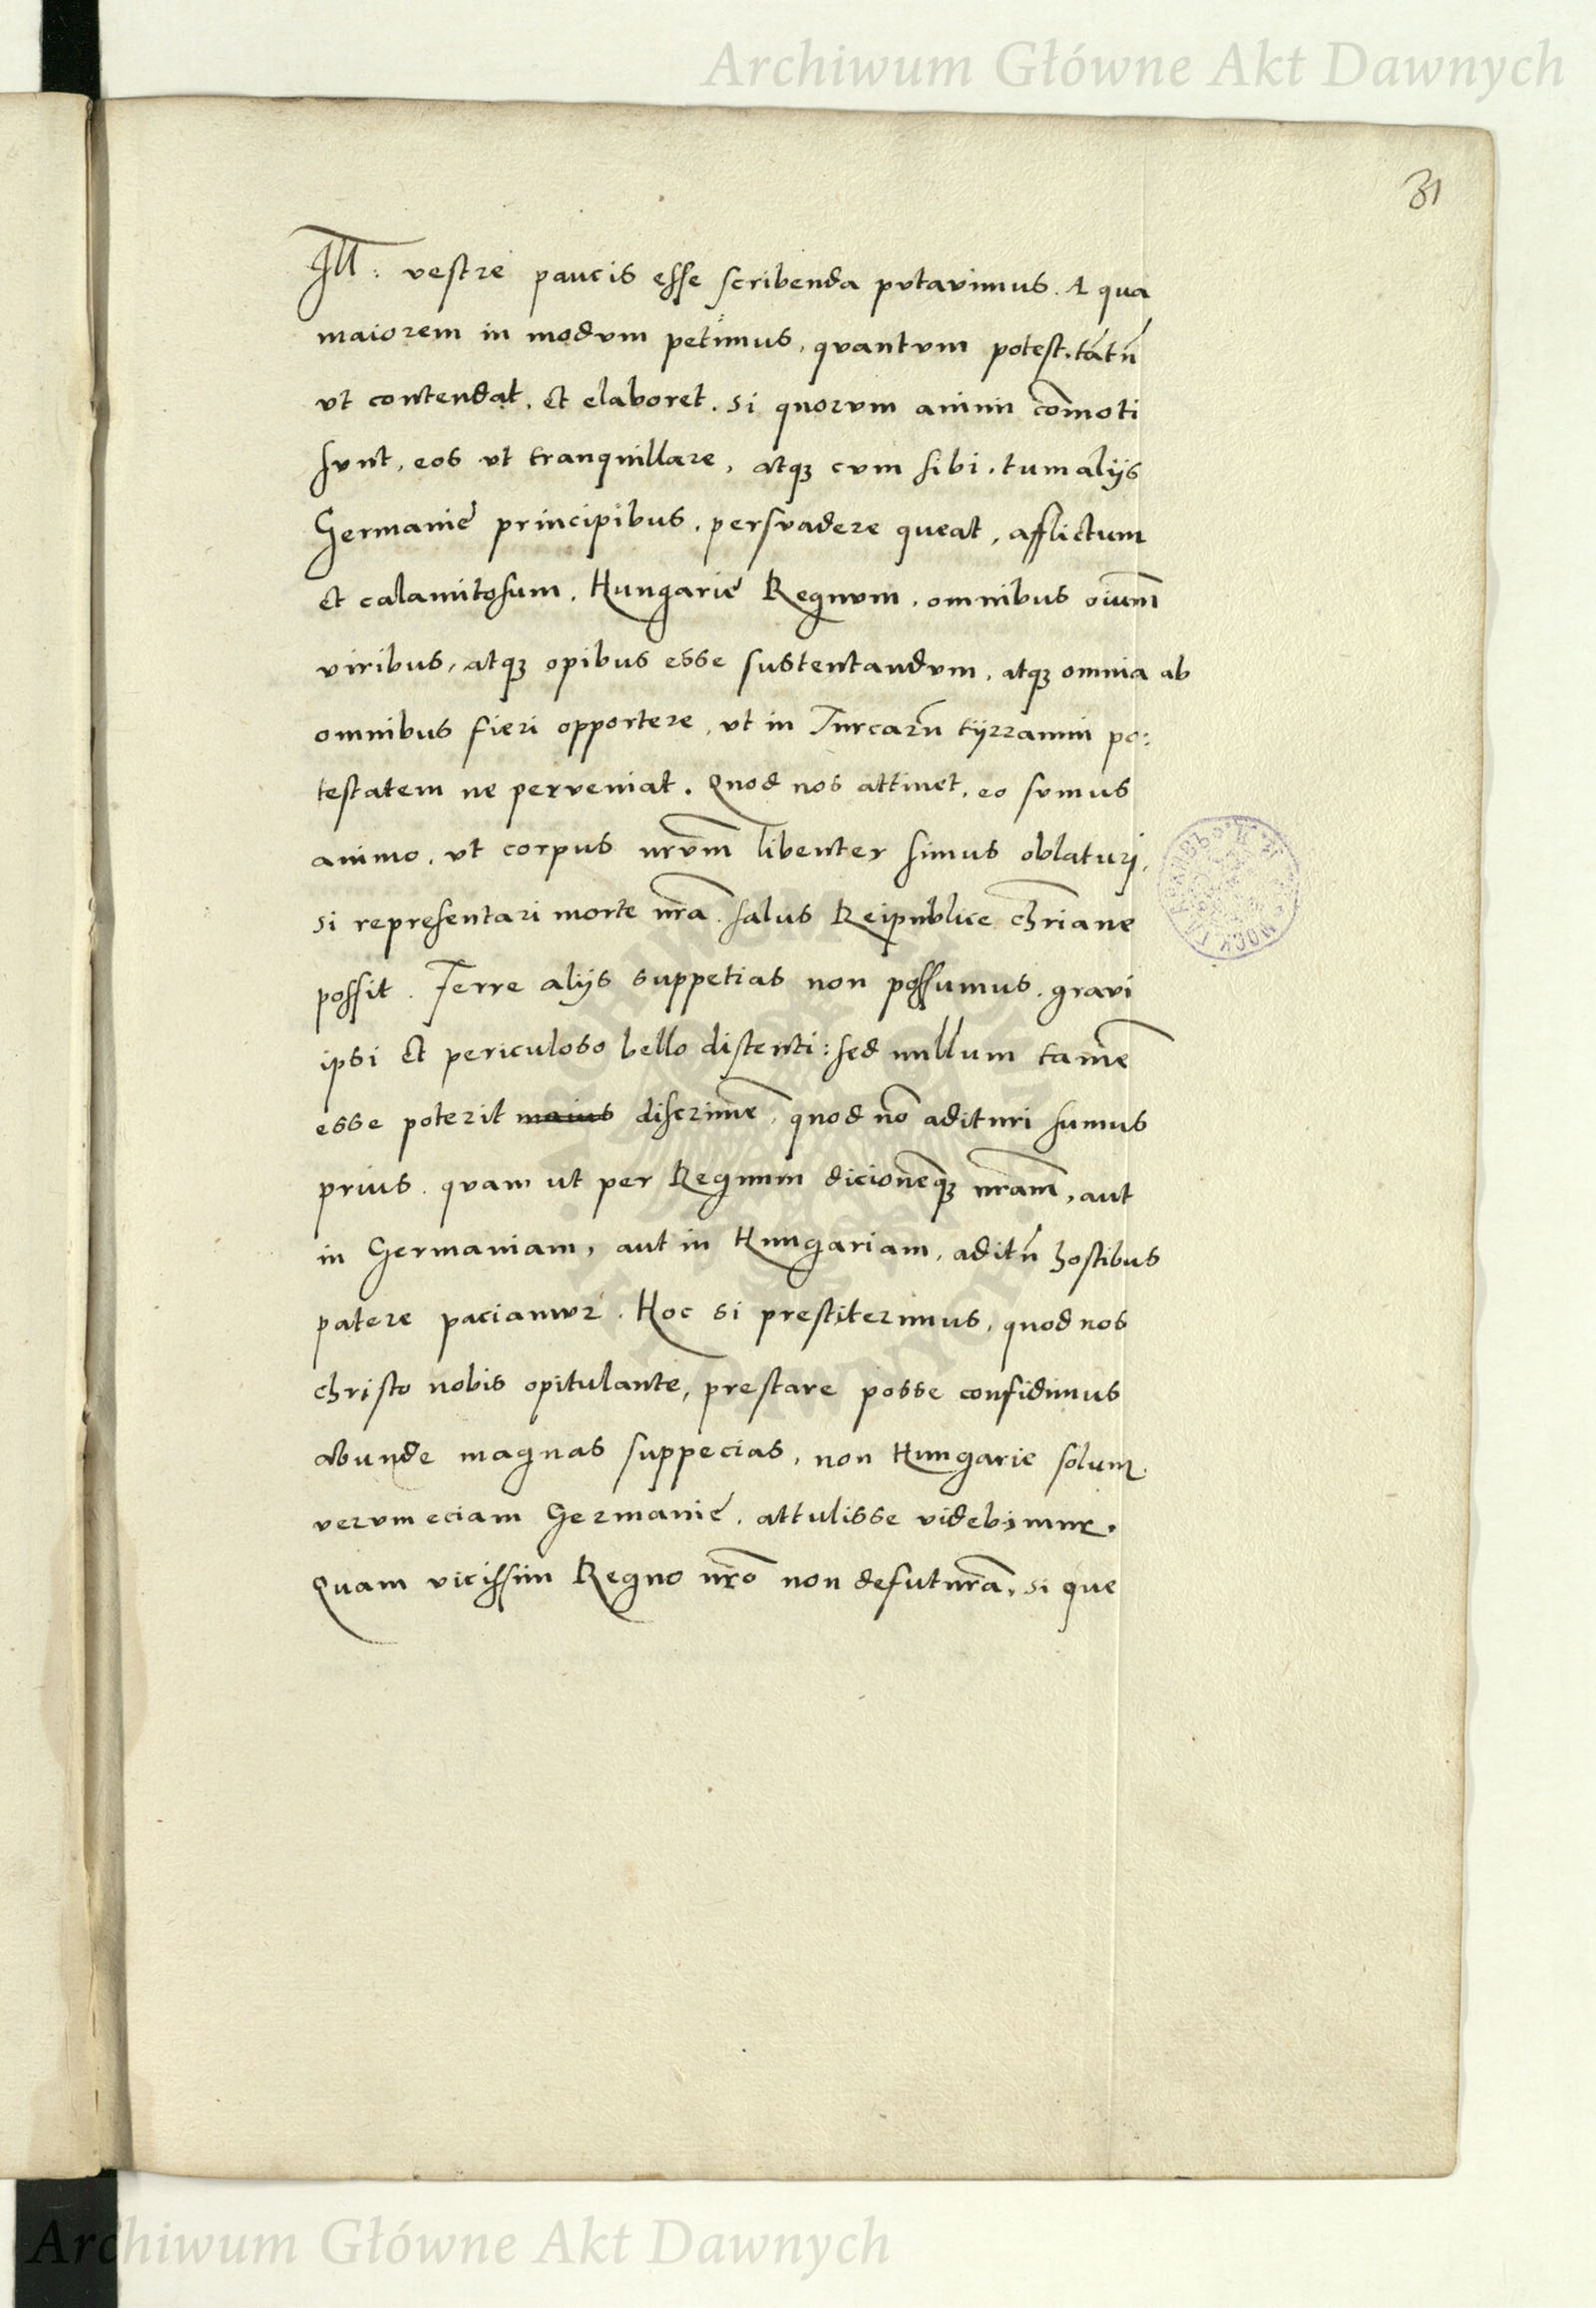 Archiwum Główne Akt Dawnych
31
Ill: vestrę paucis esse scribenda putavimus. A qua
maiorem in modum petimus, quantum potest, tātū
ut contendat, et elaboret, si quorum animi com̄oti
sunt, eos ut tranquillare, atqȝ cum sibi, tum aliis
Germanię principibus, persuadere queat, afflictum
et calamitosum, Hungarię Regnum, omnibus oīum
viribus, atqȝ opibus esse sustentandum, atqȝ omnia ab
omnibus fieri opportere, ut in Turcarū tyrranni po:
testatem ne perveniat. Quod nos attinet, eo sumus
animo, ut corpus nr̄um libenter simus oblaturi,
si representari morte nr̄a salus Reipublice chr̄iane
possit. Ferre aliis suppetias non possumus, gravi
ipsi et periculoso bello distenti: sed nullum tamē
esse poterit maius discrimē, quod nō adituri sumus
prius, quam ut per Regnum dicionēqȝ nr̄am, aut
in Germaniam, aut in Hungariam, aditū hostibus
patere paciamur. Hoc si prestiterimus, quod nos
christo nobis opitulante, prestare posse confidimus
abunde magnas suppecias, non Hungarie solum,
verum eciam Germanię, attulisse videbimur.
Quam vicissim Regno nr̄o non defuturā, si que
Archiwum Główne Akt Dawnych